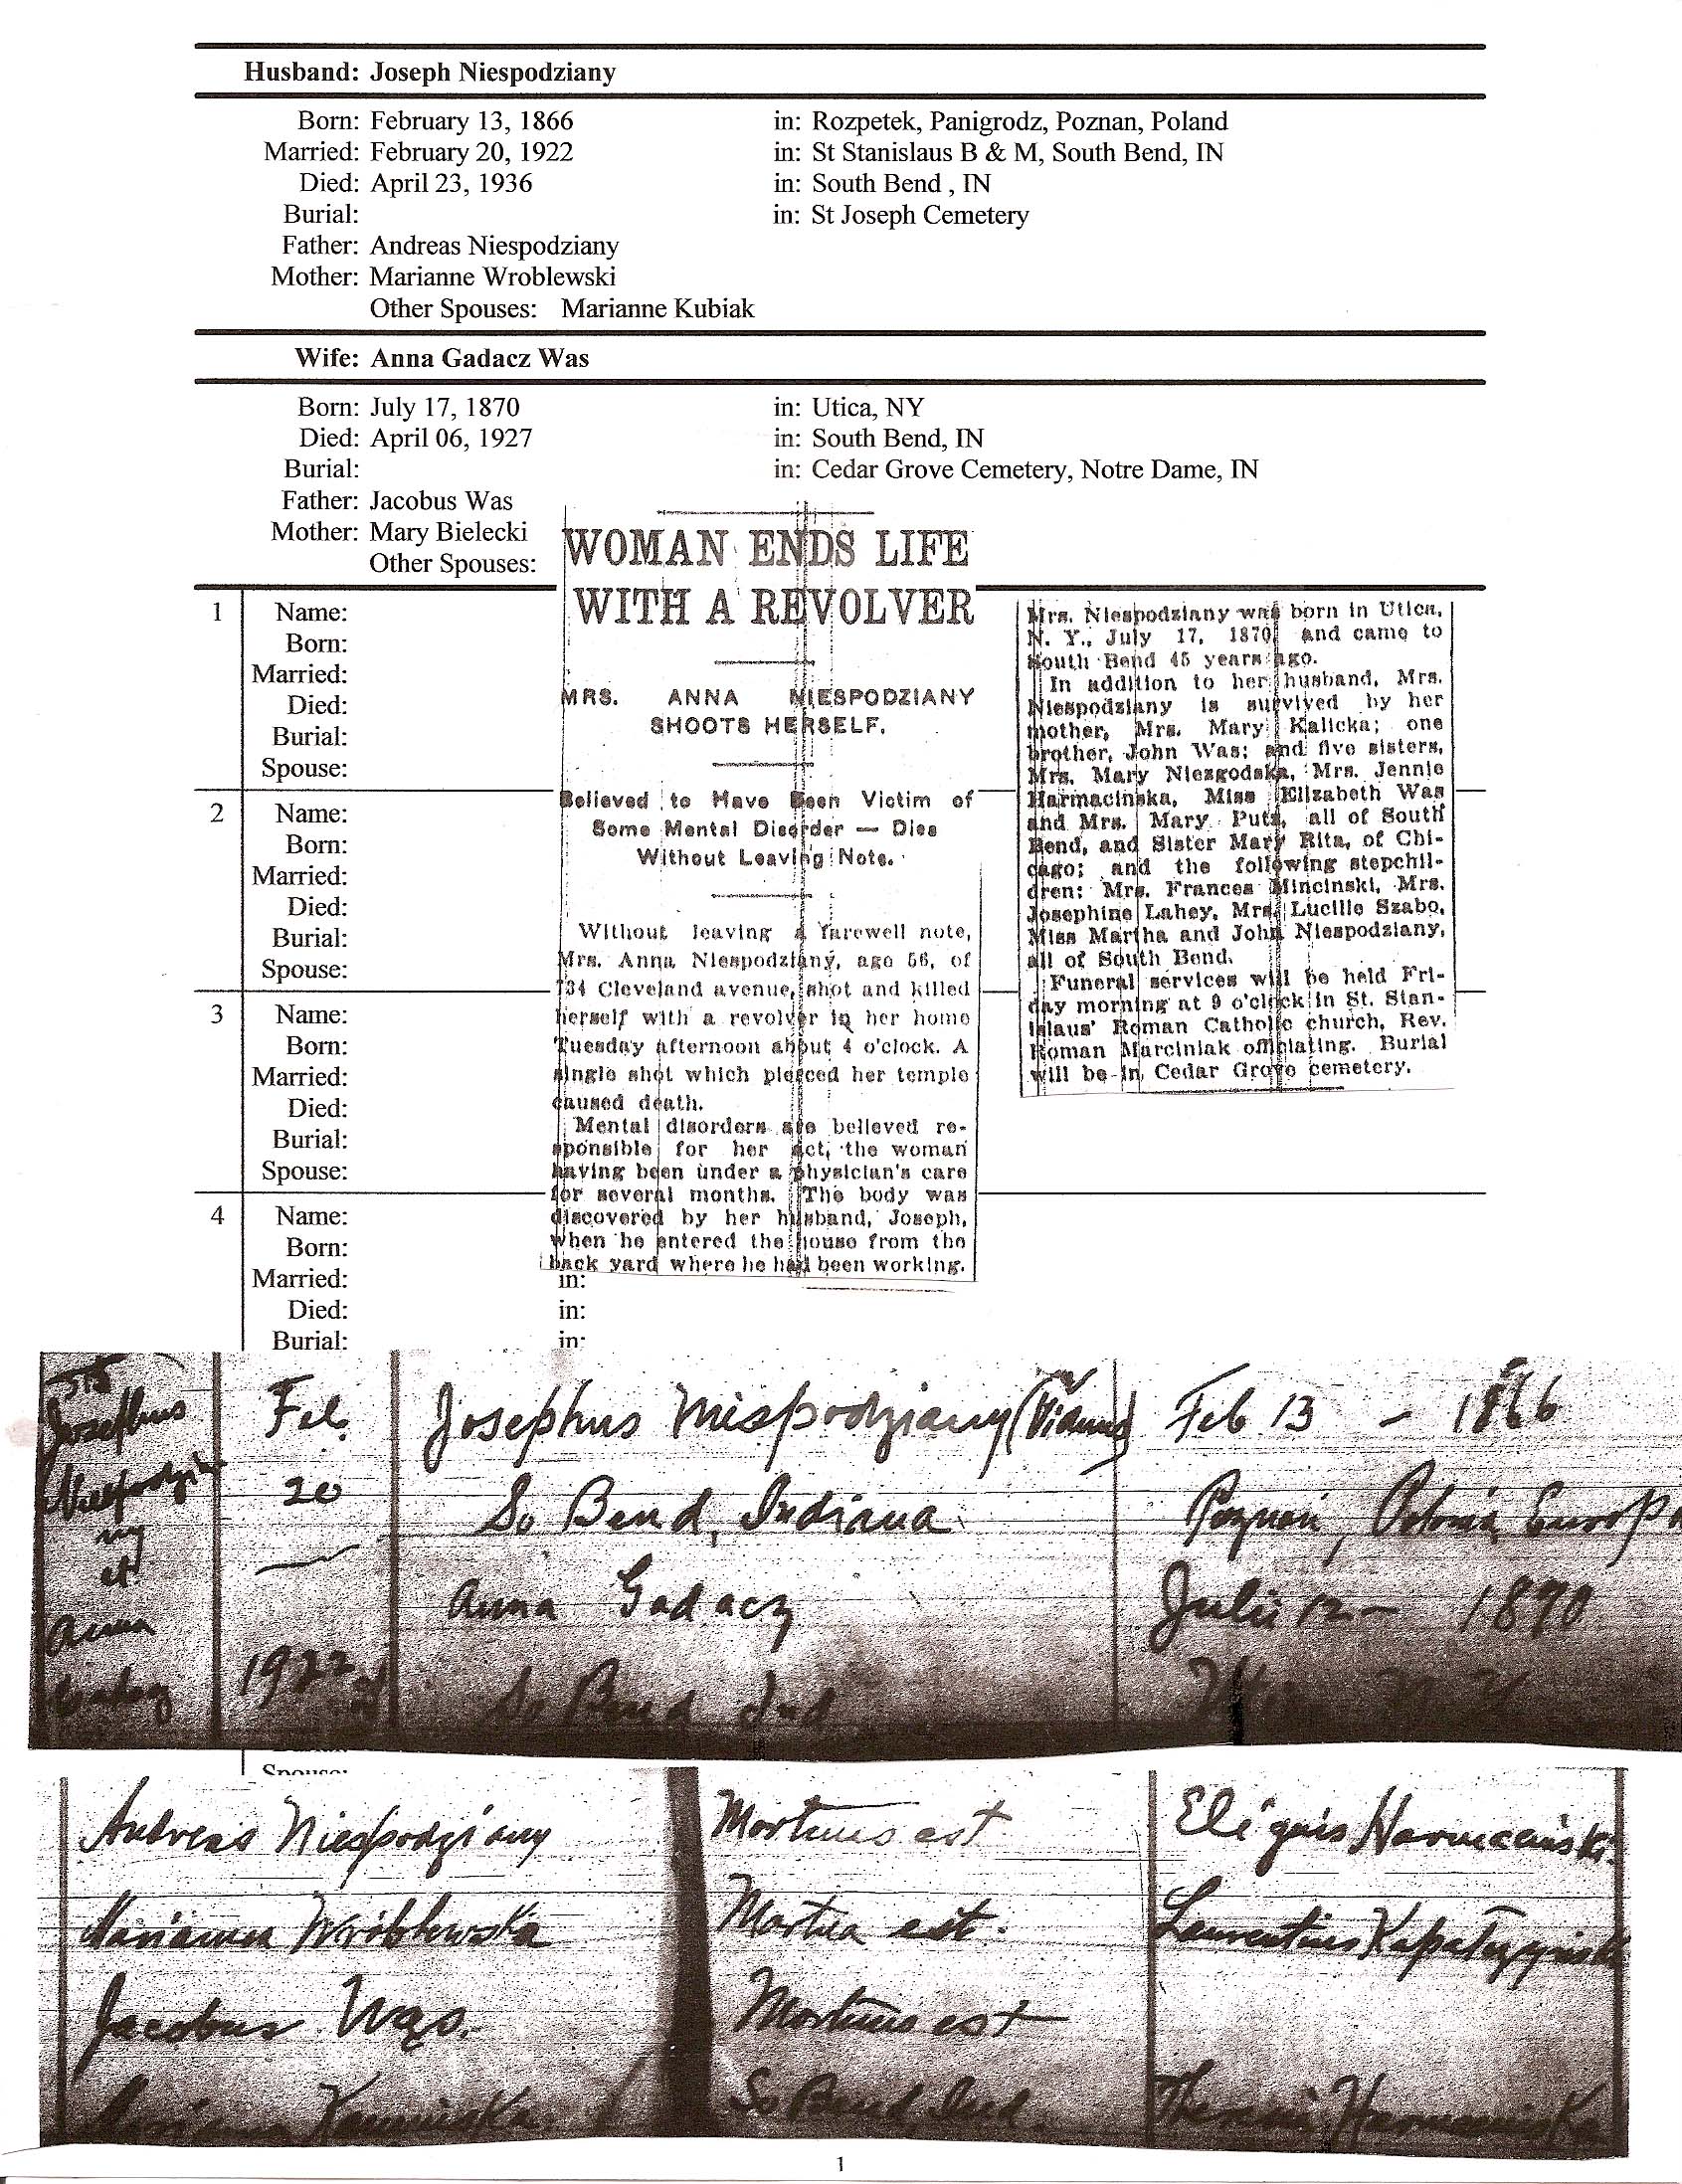 Husband: Joseph Niespodziany
Born: February 13, 1866 in: Rozpetek, Panigrodz, Poznan, Poland
Married: February 20, 1922 in: St Stanislaus B & M, South Bend, IN
Died: April 23, 1936 in: South Bend , IN
Burial: in: St Joseph Cemetery
Father: Andreas Niespodziany
Mother: Marianne Wroblewski
Other Spouses: Marianne Kubiak
Wife: Anna Gadacz Was
Born: July 17, 1870 in: Utica, NY
Died: April 06, 1927 in: South Bend, IN
Burial: in: Cedar Grove Cemetery, Notre Dame, IN
Father: Jacobus Was
Mother: Mary Bielecki
Other Spouses:
1 Name:
Born:
Married:
Died:
Burial:
Spouse:
2 Name:
Born:
Married:
Died:
Burial:
Spouse:
3 Name:
Born:
Married:
Died:
Burial:
Spouse:
4 Name:
Born:
Married: in:
Died: in:
Burial: in:
WOMAN ENDS LIFE
WITH A REVOLVER
MRS. ANNA NIESPODZIANY
SHOOTS HERSELF.
Believed to Have Been Victim of
Some Mental Disorder — Dies
Without Leaving Note.
Without leaving a farewell note,
Mrs. Anna Niespodziany, age 56, of
734 Cleveland avenue, shot and killed
herself with a revolver in her home
Tuesday afternoon about 4 o'clock. A
single shot which pierced her temple
caused death.
Mental disorders are believed re-
sponsible for her act, the woman
having been under a physician's care
for several months. The body was
discovered by her husband, Joseph,
when he entered the house from the
back yard where he had been working.
Mrs. Niespodziany was born in Utica,
N. Y., July 17, 1870 and came to
South Bend 45 years ago.
In addition to her husband, Mrs.
Niespodziany is survived by her
mother, Mrs. Mary Kalicka; one
brother, John Was; and five sisters,
Mrs. Mary Niezgodska, Mrs. Jennie
Harmacinska, Miss Elizabeth Was
and Mrs. Mary Puts, all of South
Bend, and Sister Mary Rita, of Chi-
cago; and the following stepchil-
dren: Mrs. Frances Mincinski, Mrs.
Josephine Lahey, Mrs. Lucille Szabo,
Miss Martha and John Niespodziany,
all of South Bend.
Funeral services will be held Fri-
day morning at 9 o'clock in St. Stan-
islaus' Roman Catholic church, Rev.
Roman Marciniak officiating. Burial
will be in Cedar Grove cemetery.
Josephus
Niespodzia
ny
et
Anna
Gadacz
Feb.
20
1922
Josephus Niespodziany (Viduus)
So Bend, Indiana
Anna Gadacz
So Bend Ind
Feb 13 - 1866
Poznań, Polonia, Europa
Julii 12 - 1890
Utica N. Y.
Spouse:
Andreas Niespodziany
Marianna Wróblewska
Jacobus Wąs.
Marianna Kaminska
Mortuus est
Mortua est.
Mortuus est
So Bend Ind.
Eligius Harmacinski
Laurentius
Theresia Harmacinska
1